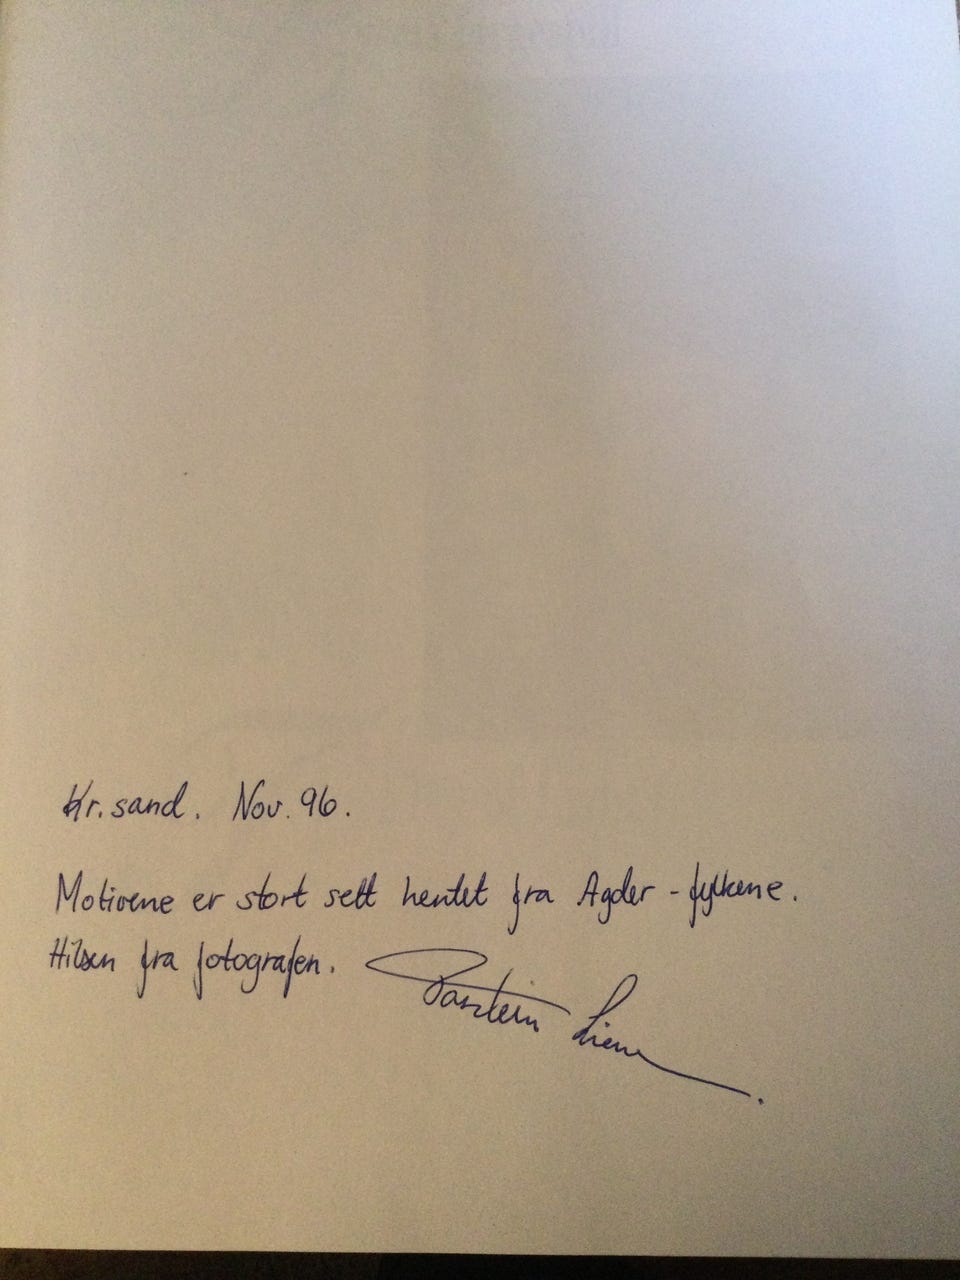 Kr.sand. Nov. 96.
Motivene er stort sett hentet fra Agder-fylkene.
Hilsen fra fotografen.